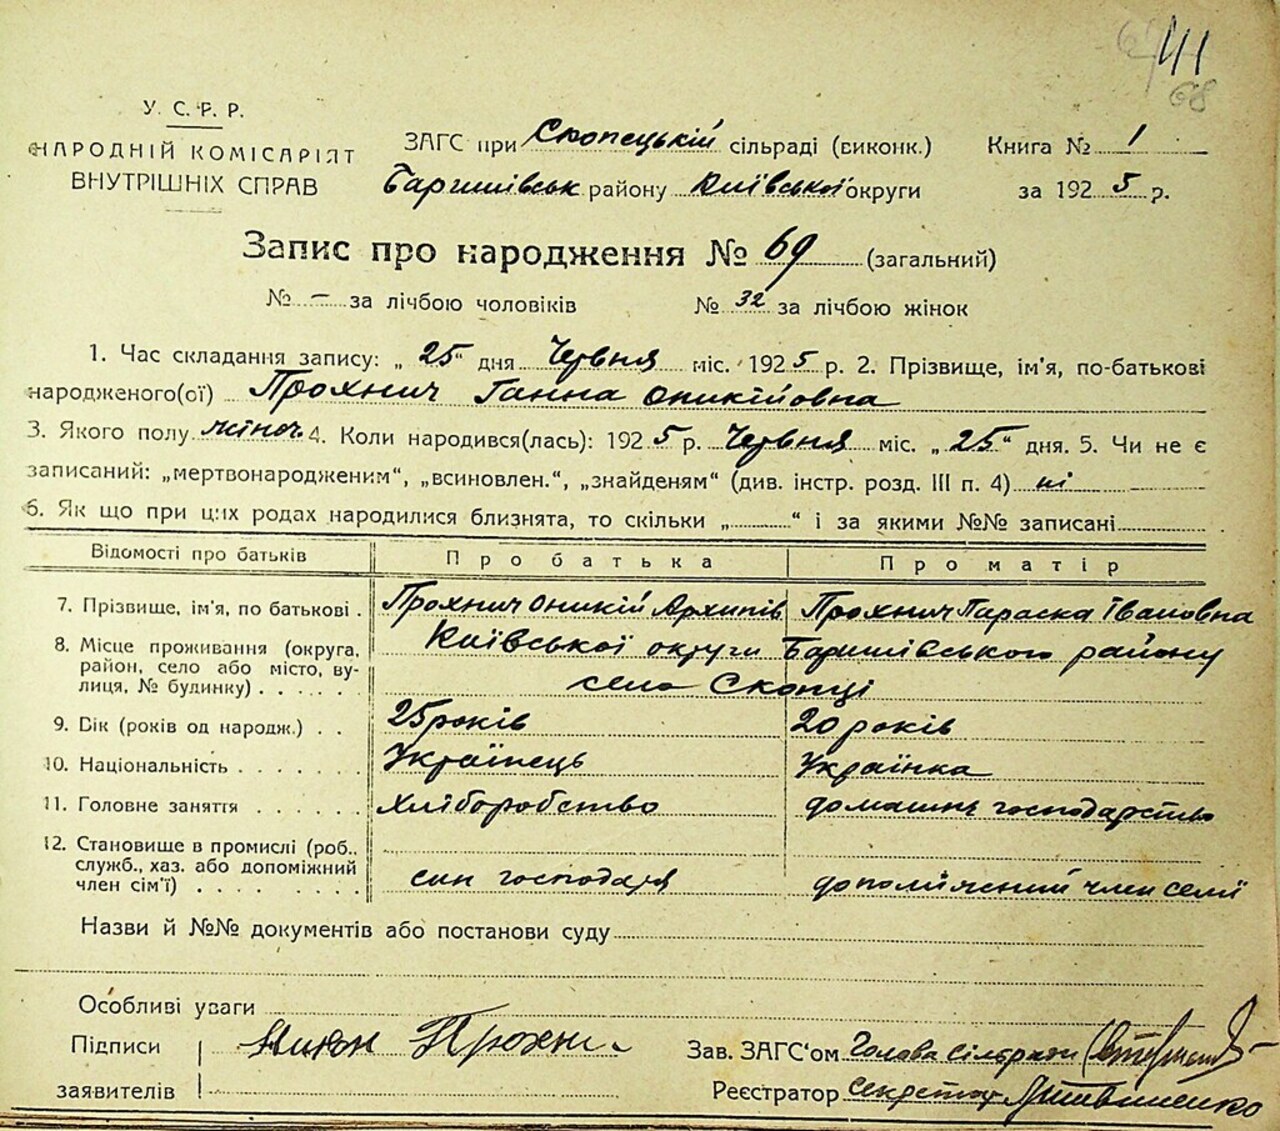 41
68
У. С. Р. Р.
НАРОДНІЙ КОМІСАРІЯТ
ВНУТРІШНІХ СПРАВ
ЗАГС при Скопецькій сільраді (виконк.) Книга № 1
Баришівськ району Київської округи за 1925 р.
Запис про народження № 69 (загальний)
№ – за лічбою чоловіків № 32 за лічбою жінок
1. Час складання запису: „25“ дня Червня міс. 1925 р. 2. Прізвище, ім'я, по-батькові
народженого(ої) Прохнич Ганна Оникійовна
3. Якого полу жіноч. 4. Коли народився(лась): 1925 р. Червня міс. „25“ дня. 5. Чи не є
записаний: „мертвонародженим“, „всиновлен.“, „знайденям“ (див. інстр. розд. III п. 4) ні
6. Як що при цих родах народилися близнята, то скільки „..........“ і за якими №№ записані
Відомості про батьків Про батька Про матір
7. Прізвище, ім'я, по батькові . Прохнич Оникій Архипів Прохнич Параска Івановна
8. Місце проживання (округа, Київської округи Баришівського району
район, село або місто, ву-
лиця, № будинку) . . . . . . село Скопці
9. Вік (років од народж.) . . 25 років 20 років
10. Національність . . . . . . . Українець Українка
11. Головне заняття . . . . . . хліборобство домашнє господарство
12. Становище в промислі (роб.,
служб., хаз. або допоміжний
член сім'ї) . . . . . . . . . син господаря допоміжний член семї
Назви й №№ документів або постанови суду
Особливі уваги
Підписи Никон Прохни
заявителів
Зав. ЗАГС'ом Голова сільради
Реєстратор Секретар